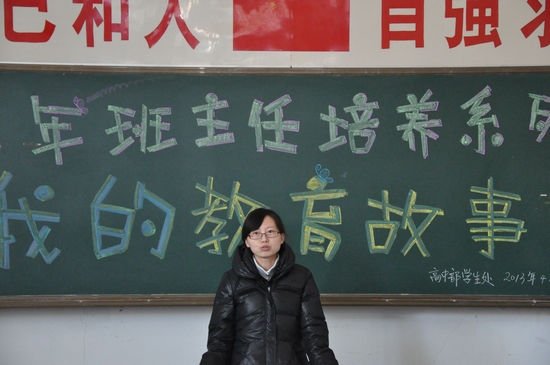 己和人 自强求
年班主任培养系
我的教育故事
高中部学生处 2013年4